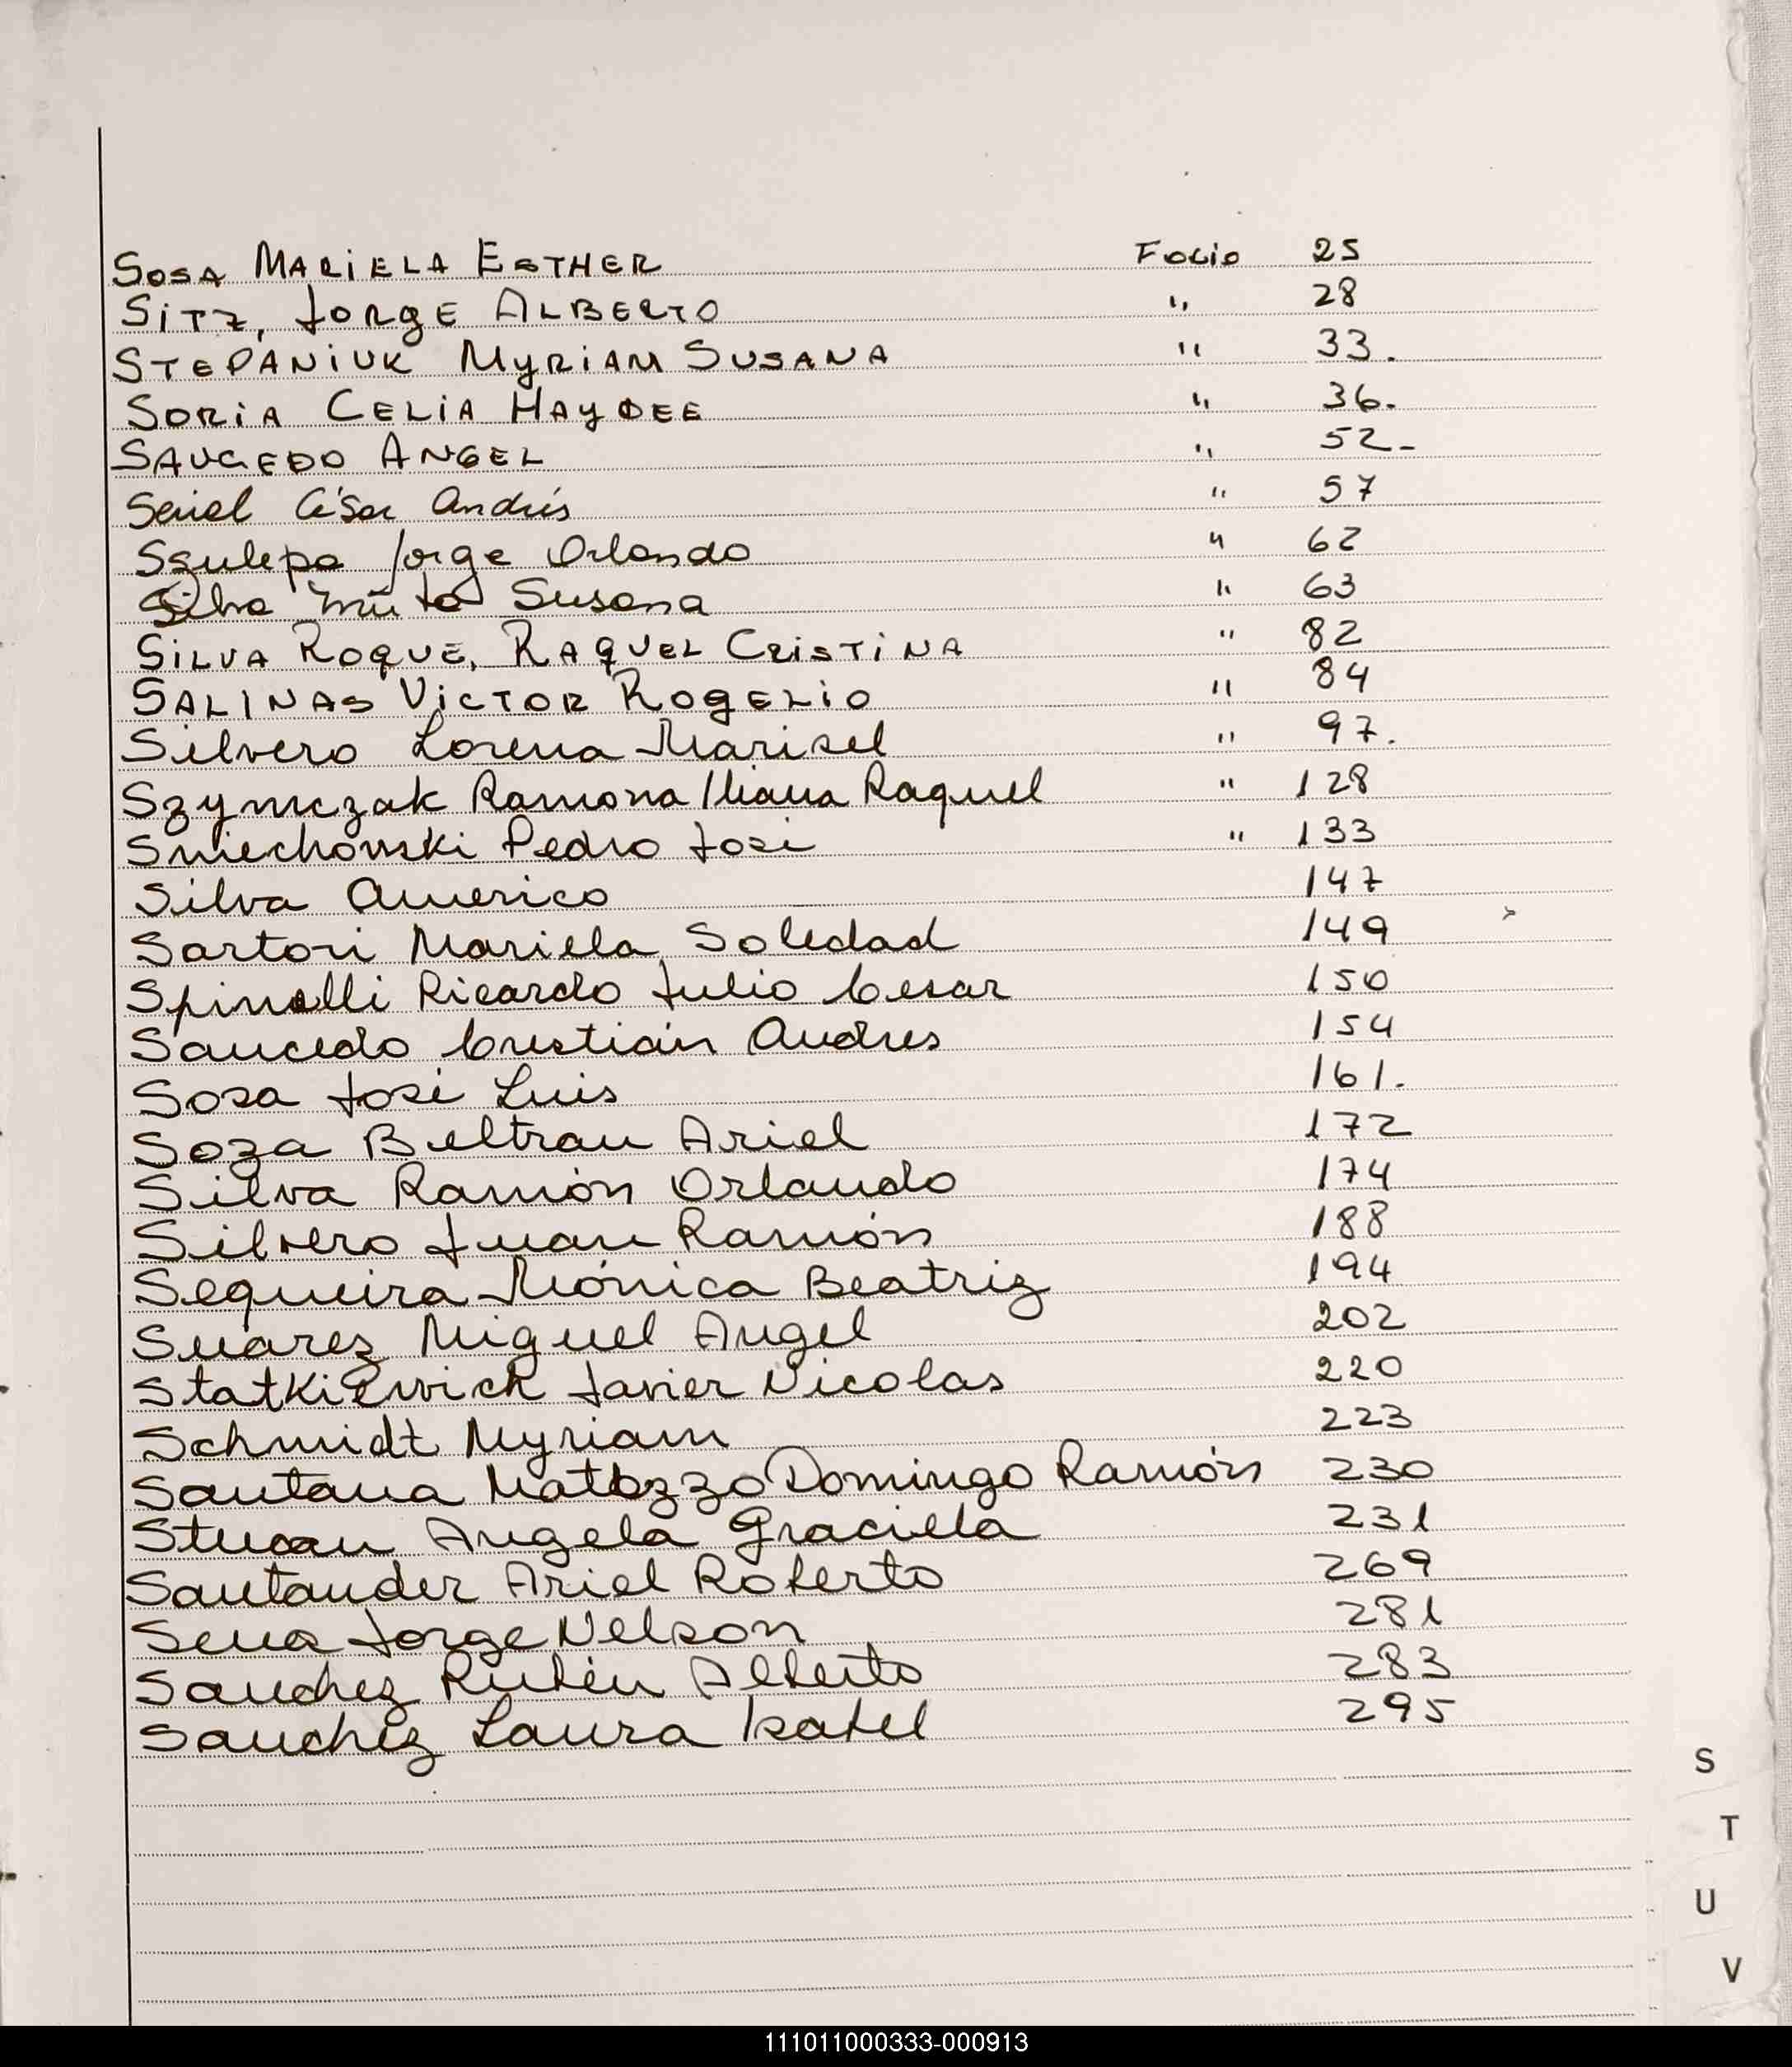 SOSA MARIELA ESTHER Folio 25
SITZ, JORGE ALBERTO " 28
STEPANIUK MYRIAM SUSANA " 33.
SORIA CELIA HAYDEE " 36.
SAUCEDO ANGEL " 52-
César Andrés " 57
Szulepa Jorge Orlando " 62
Silva Susana " 63
SILVA ROQUE, RAQUEL CRISTINA " 82
SALINAS VICTOR ROGELIO " 84
Silvero Lorena Marisel " 97.
Szymczak Ramona Iliana Raquel " 128
Sniechowski Pedro José " 133
Silva Americo 147
Sartori Mariela Soledad 149
Spinelli Ricardo Julio Cesar 150
Saucedo Cristián Andres 154
Sosa José Luis 161.
Soza Beltran Ariel 172
Silva Ramón Orlando 174
Silvero Juan Ramón 188
Sequeira Mónica Beatriz 194
Suárez Miguel Angel 202
Statkiewick Javier Nicolas 220
Schmidt Myriam 223
Santana Matozzo Domingo Ramón 230
Angela Graciela 231
Santander Ariel Roberto 269
Sena Jorge Nelson 281
Sanchez Rubén Alberto 283
Sanchez Laura Isabel 295
S
T
U
V
111011000333-000913